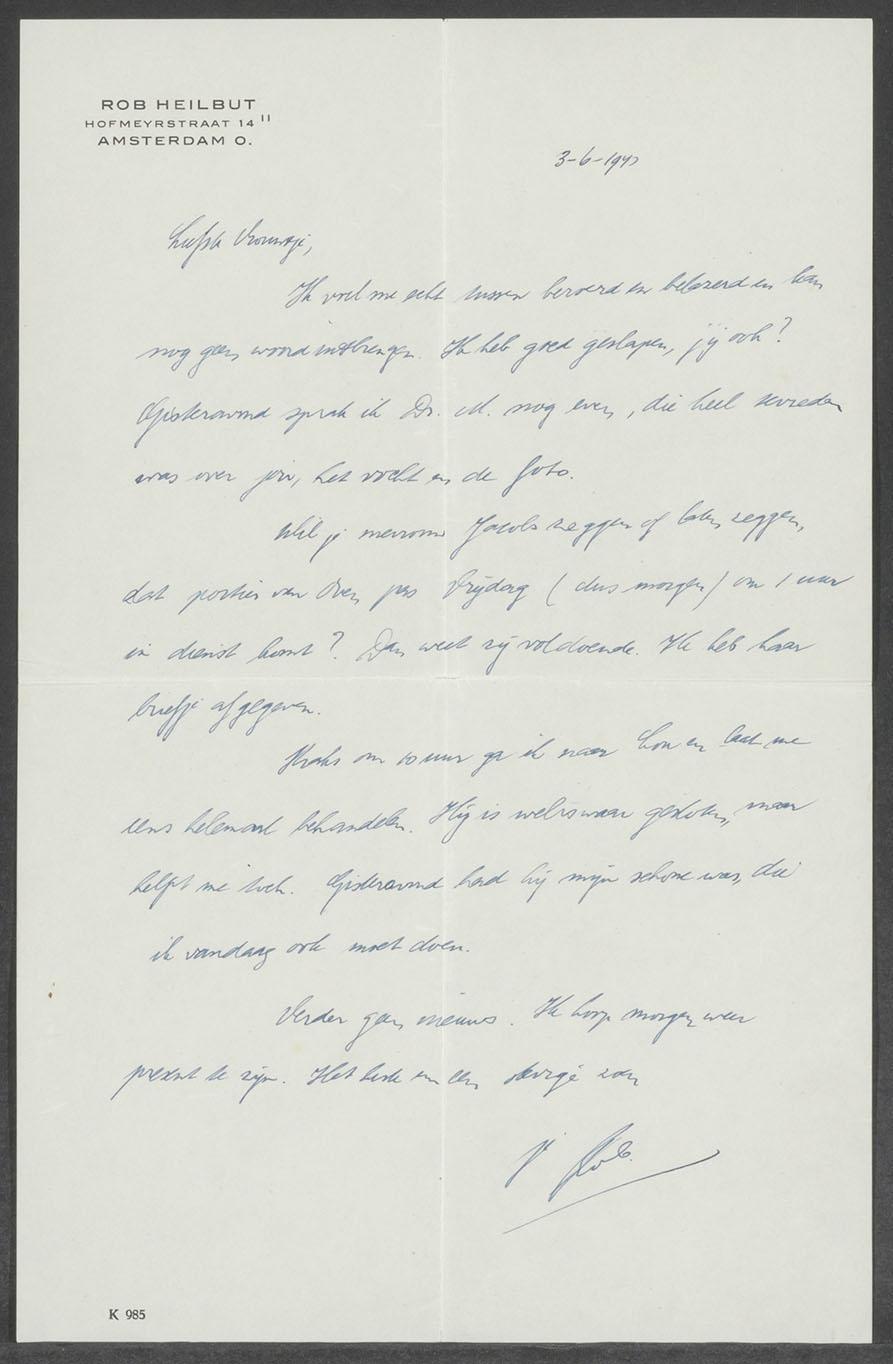 ROB HEILBUT
HOFMEYRSTRAAT 14 II
AMSTERDAM O.
3-6-194
Liefste Vrouwtje,
Ik voel me echt tussen beroerd en belazerd en kan
nog geen woord uitbrengen. Ik heb goed geslapen, jij ook?
Gisteravond sprak ik Dr. M. nog even, die heel tevreden
was over jou, het vocht en de foto.
Wil je mevrouw Jacobs zeggen of laten zeggen,
dat portier van Oven pas Vrijdag (dus morgen) om 1 uur
in dienst komt? Dan weet zij voldoende. Ik heb haar
briefje afgegeven.
Straks om 10 uur ga ik naar Lou en laat me
eens helemaal behandelen. Hij is weliswaar gesloten, maar
helpt me toch. Gisteravond had hij mijn schone was, die
ik vandaag ook moet doen.
Verder geen nieuws. Ik hoop morgen weer
present te zijn. Het beste en een stevige zoen
Rob.
K 985